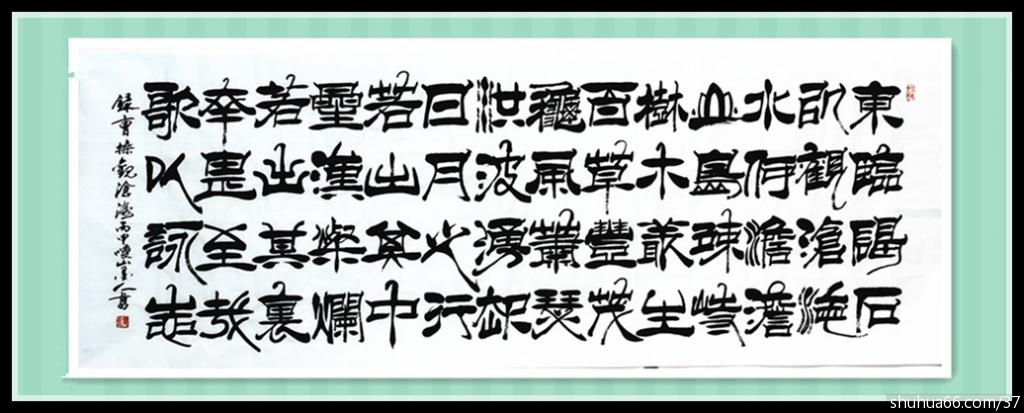 東臨碣石
以觀滄海
水何澹澹
山島竦峙
樹木叢生
百草豐茂
龝風蕭瑟
洪波湧起
日月之行
若出其中
星漢粲爛
若出其裏
幸甚至哉
歌以詠志
錄曹操觀滄海丙申
shuhua66.com/37